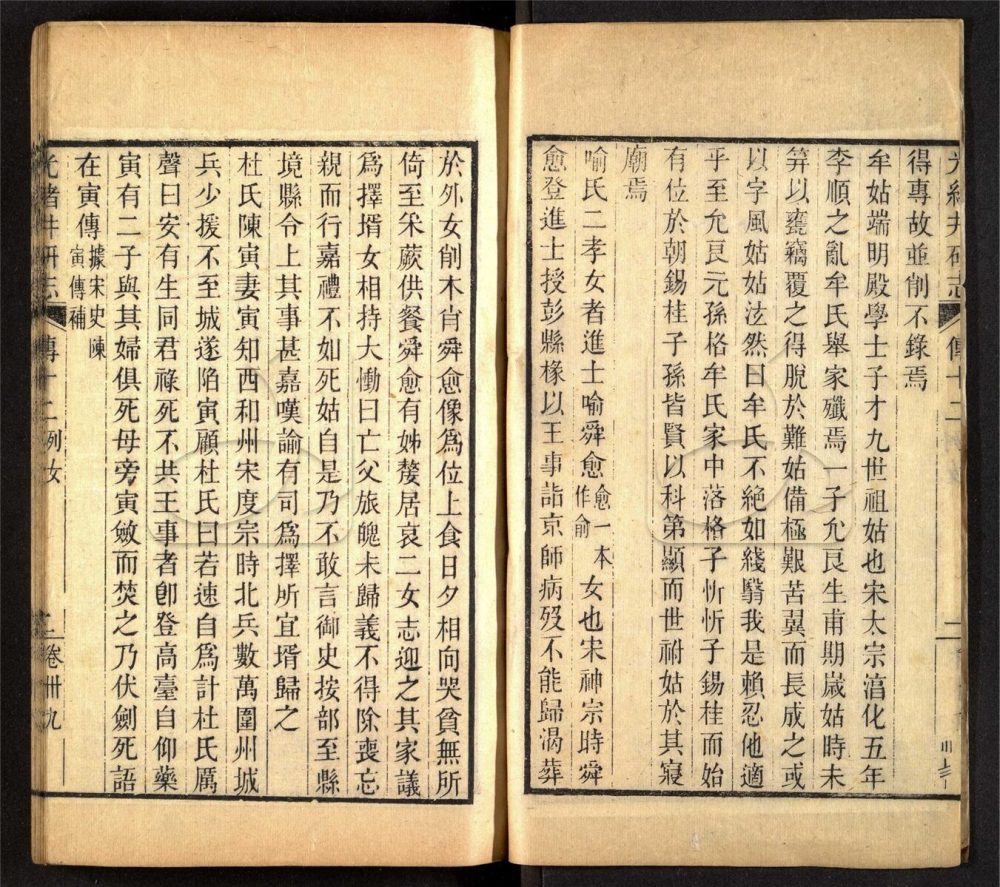 光緒井研志 傳十二 二
得專故並削不錄焉
牟姑端明殿學士子才九世祖姑也宋太宗淯化五年
李順之亂牟氏舉家殲焉一子允良生甫期歲姑時未
笄以甕竊覆之得脫於難姑備極艱苦翼而長成之或
以字風姑姑泫然曰牟氏不絕如綫翳我是賴忍他適
乎至允良元孫格牟氏家中落格子忻忻子錫桂而始
有位於朝錫桂子孫皆賢以科第顯而世祔姑於其寢
廟焉
喻氏二孝女者進士喻舜愈愈一本作俞女也宋神宗時舜
愈登進士授彭縣椽以王事詣京師病歿不能歸渴葬
於外女削木肖舜愈像爲位上食日夕相向哭貧無所
倚至采蕨供餐舜愈有姊嫠居哀二女志迎之其家議
爲擇壻女相持大慟曰亡父旅魄未歸義不得除喪忘
親而行嘉禮不如死姑自是乃不敢言御史按部至縣
境縣令上其事甚嘉嘆諭有司爲擇所宜壻歸之
杜氏陳寅妻寅知西和州宋度宗時北兵數萬圍州城
兵少援不至城遂陷寅顧杜氏曰若速自爲計杜氏厲
聲曰安有生同君祿死不共王事者卽登高臺自仰藥
寅有二子與其婦俱死母旁寅斂而焚之乃伏劍死語
在寅傳據宋史陳寅傳補
光緒井研志 傳十二列女 二 卷卅九